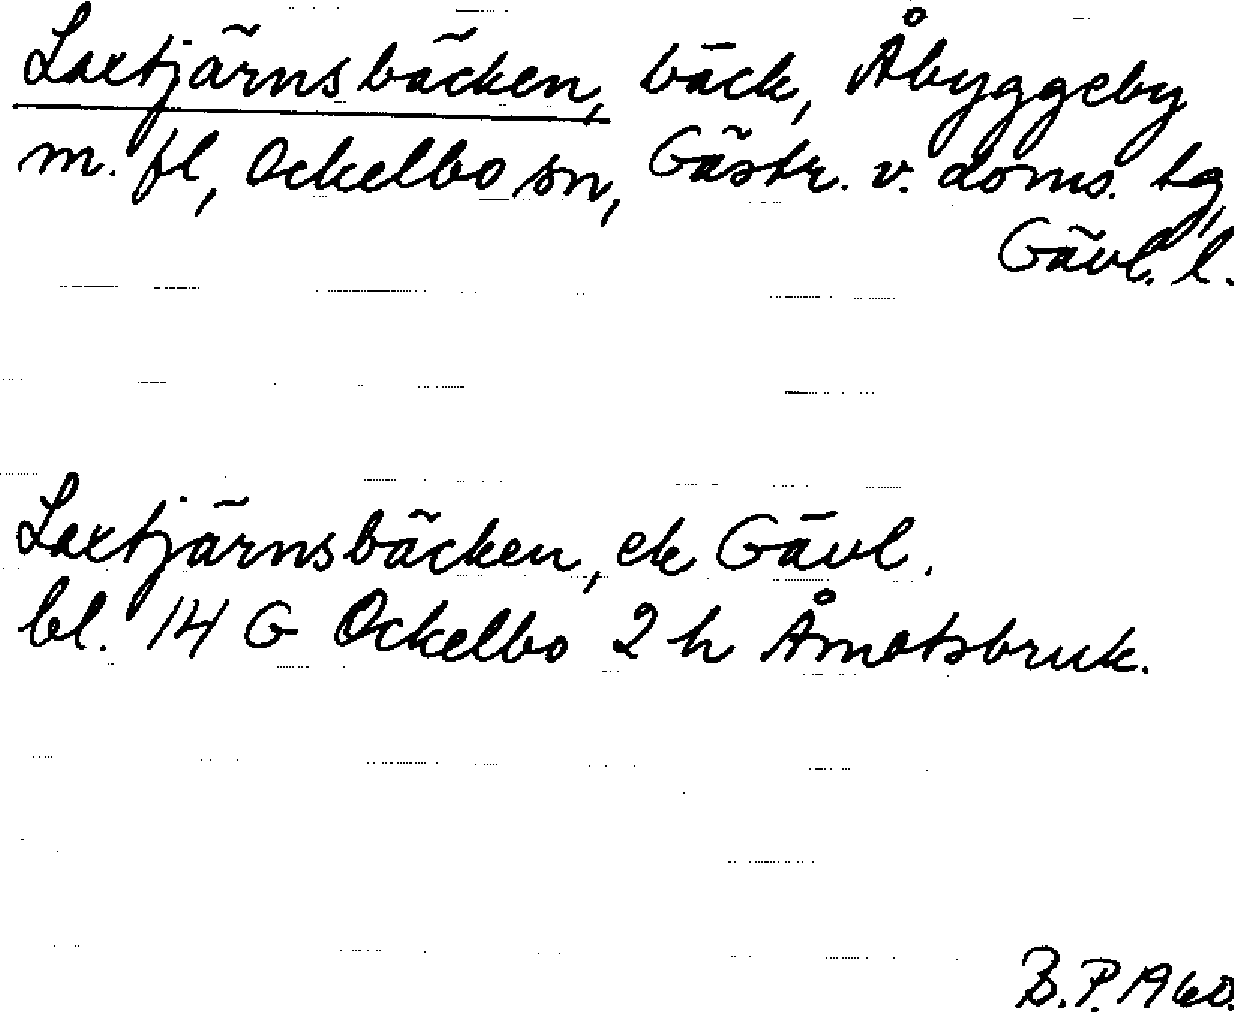 Laxtjärnsbäcken, bäck, Åbyggeby
m. fl, Ockelbo sn, Gästr. v. doms. tg,
Gävl. l.
Laxtjärnsbäcken, ek Gävl.
bl. 14 G Ockelbo 2 h Åmotsbruk.
B.P. 1960.